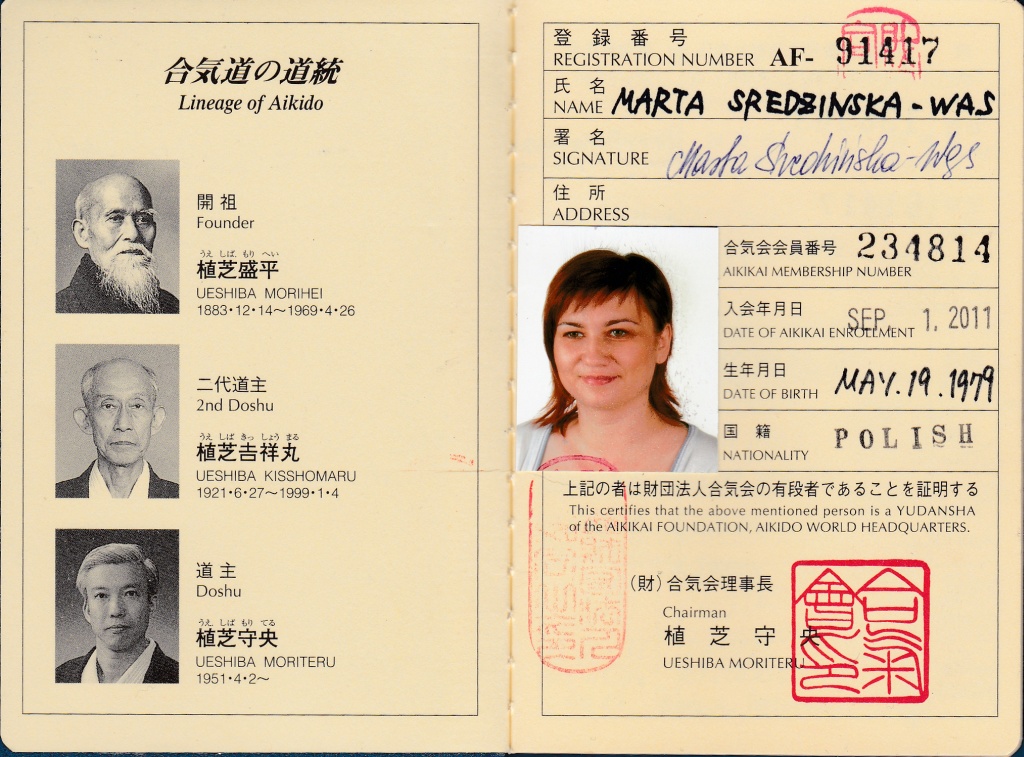 合気道の道統
Lineage of Aikido
開祖
Founder
うえ しば もり へい
植芝盛平
UESHIBA MORIHEI
1883・12・14～1969・4・26
二代道主
2nd Doshu
うえ しば きっ しょう まる
植芝吉祥丸
UESHIBA KISSHOMARU
1921・6・27～1999・1・4
道主
Doshu
うえ しば もり てる
植芝守央
UESHIBA MORITERU
1951・4・2～
登録番号
REGISTRATION NUMBER AF- 91417
氏名
NAME MARTA SREDZINSKA-WAS
署名
SIGNATURE Marta Średzińska-Wąs
住所
ADDRESS
合気会会員番号 234814
AIKIKAI MEMBERSHIP NUMBER
入会年月日 SEP. 1, 2011
DATE OF AIKIKAI ENROLLMENT
生年月日
DATE OF BIRTH MAY.19.1979
国籍 POLISH
NATIONALITY
上記の者は財団法人合気会の有段者であることを証明する
This certifies that the above mentioned person is a YUDANSHA
of the AIKIKAI FOUNDATION, AIKIDO WORLD HEADQUARTERS.
（財）合気会理事長
Chairman
植芝守央
UESHIBA MORITERU